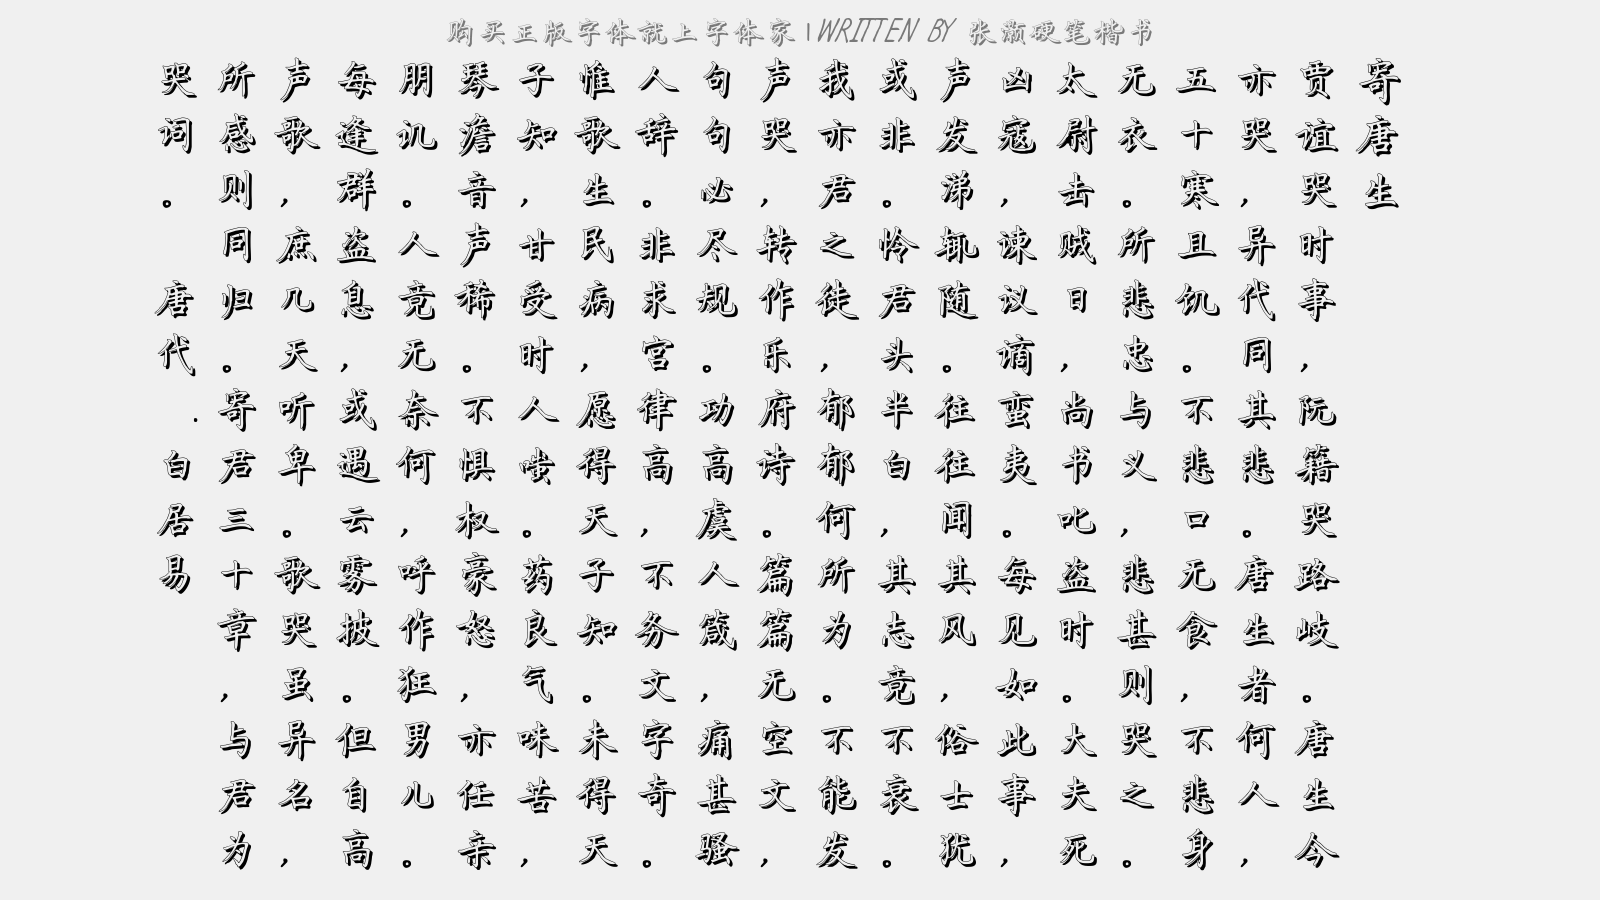 购买正版字体就上字体家 | WRITTEN BY 张灏硬笔楷书
寄唐生
贾谊哭时事，阮籍哭路岐。唐生今
亦哭，异代同其悲。唐生者何人，
五十寒且饥。不悲口无食，不悲身
无衣。所悲忠与义，悲甚则哭之。
太尉击贼日，尚书叱盗时。大夫死
凶寇，谏议谪蛮夷。每见如此事，
声发涕辄随。往往闻其风，俗士犹
或非。怜君头半白，其志竟不衰。
我亦君之徒，郁郁何所为。不能发
声哭，转作乐府诗。篇篇无空文，
句句必尽规。功高虞人箴，痛甚骚
人辞。非求宫律高，不务文字奇。
惟歌生民病，愿得天子知。未得天
子知，甘受时人嗤。药良气味苦，
琴澹音声稀。不惧权豪怒，亦任亲
朋讥。人竟无奈何，呼作狂男儿。
每逢群盗息，或遇云雾披。但自高
声歌，庶几天听卑。歌哭虽异名，
所感则同归。寄君三十章，与君为
哭词。 唐代.白居易